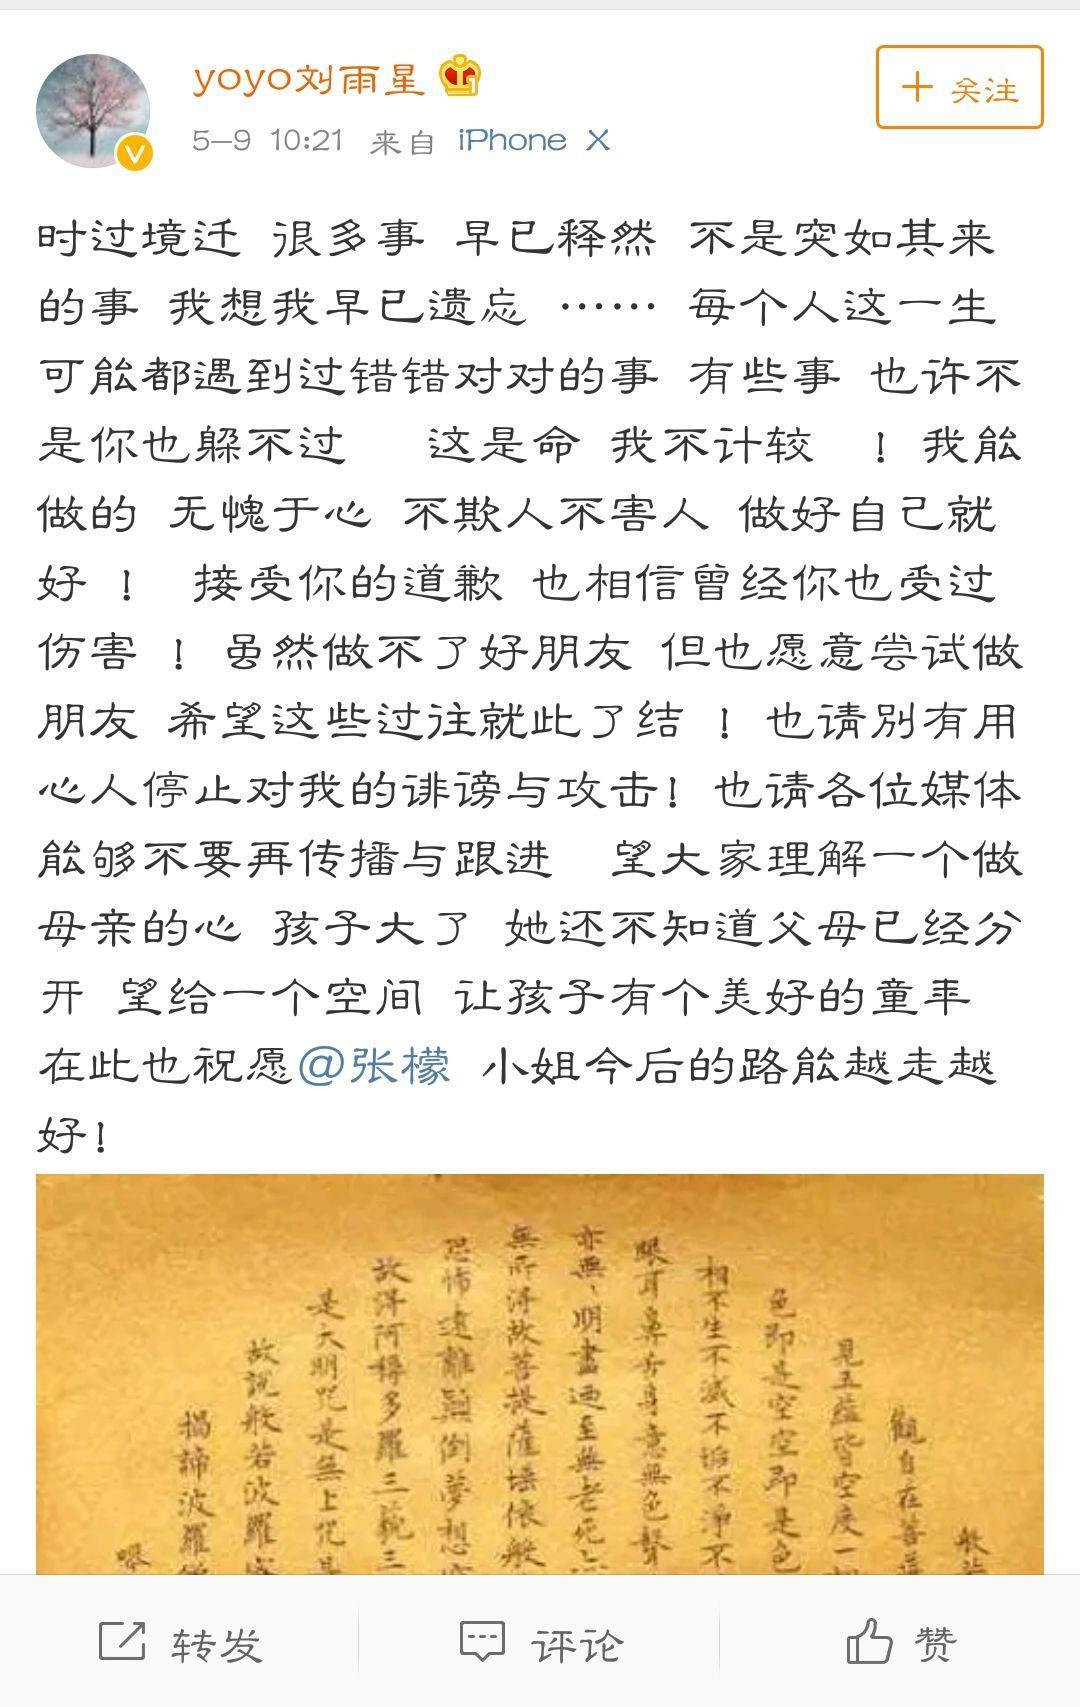 yoyo刘雨星
+ 关注
5-9 10:21 来自 iPhone X
时过境迁 很多事 早已释然 不是突如其来
的事 我想我早已遗忘 …… 每个人这一生
可能都遇到过错错对对的事 有些事 也许不
是你也躲不过 这是命 我不计较 ！我能
做的 无愧于心 不欺人不害人 做好自己就
好 ！ 接受你的道歉 也相信曾经你也受过
伤害 ！虽然做不了好朋友 但也愿意尝试做
朋友 希望这些过往就此了结 ！也请别有用
心人停止对我的诽谤与攻击！也请各位媒体
能够不要再传播与跟进 望大家理解一个做
母亲的心 孩子大了 她还不知道父母已经分
开 望给一个空间 让孩子有个美好的童年
在此也祝愿@张檬 小姐今后的路能越走越
好！
般
觀自在菩
見五蘊皆空度一
色即是空空即是色
相不生不滅不垢不淨不
眼耳鼻舌身意無色聲
亦無明盡迺至無老死亦
無所淂故菩提薩埵依般
恐怖遠離顛倒夢想
故淂阿耨多羅三藐三
是大明咒是無上咒是
故說般若波羅
揭諦波羅
转发
评论
赞